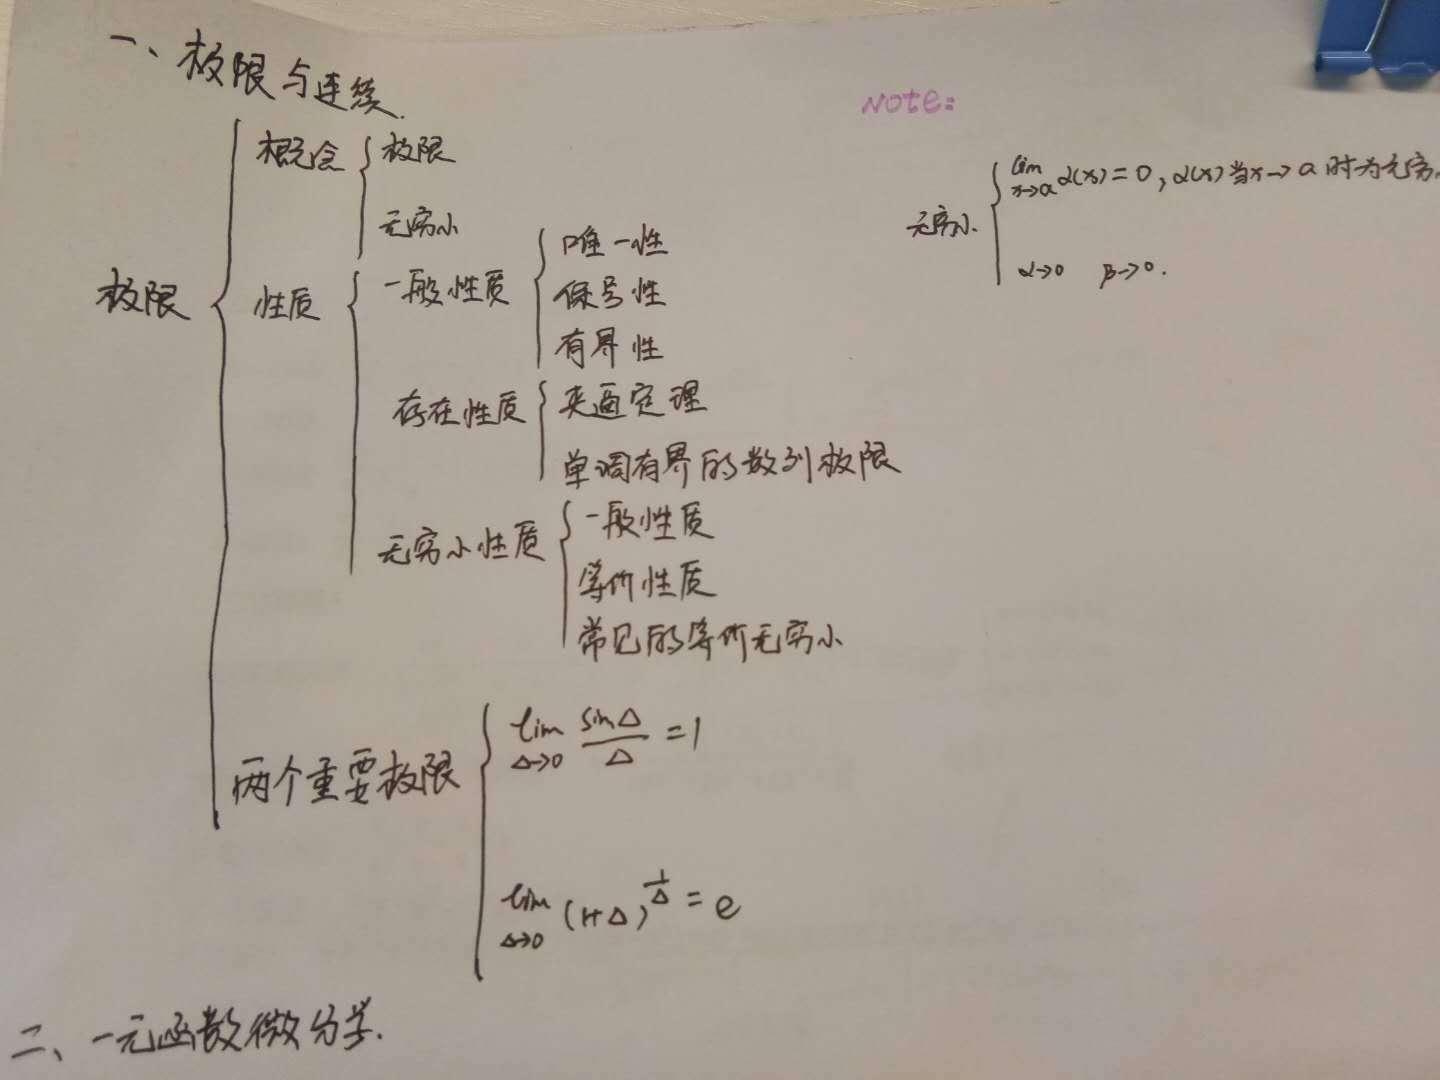 一、极限与连续.
Note:
概念 极限
无穷小
lim x→a α(x)=0, α(x)当x→a时为无穷
无穷小
唯一性
α→0 β→0.
极限 性质 一般性质 保号性
有界性
存在性质 夹逼定理
单调有界的数列极限
一般性质
无穷小性质 等价性质
常见的等价无穷小
lim Δ→0 sinΔ/Δ =1
两个重要极限
lim Δ→0 (1+Δ)^(1/Δ) = e
二、一元函数微分学.